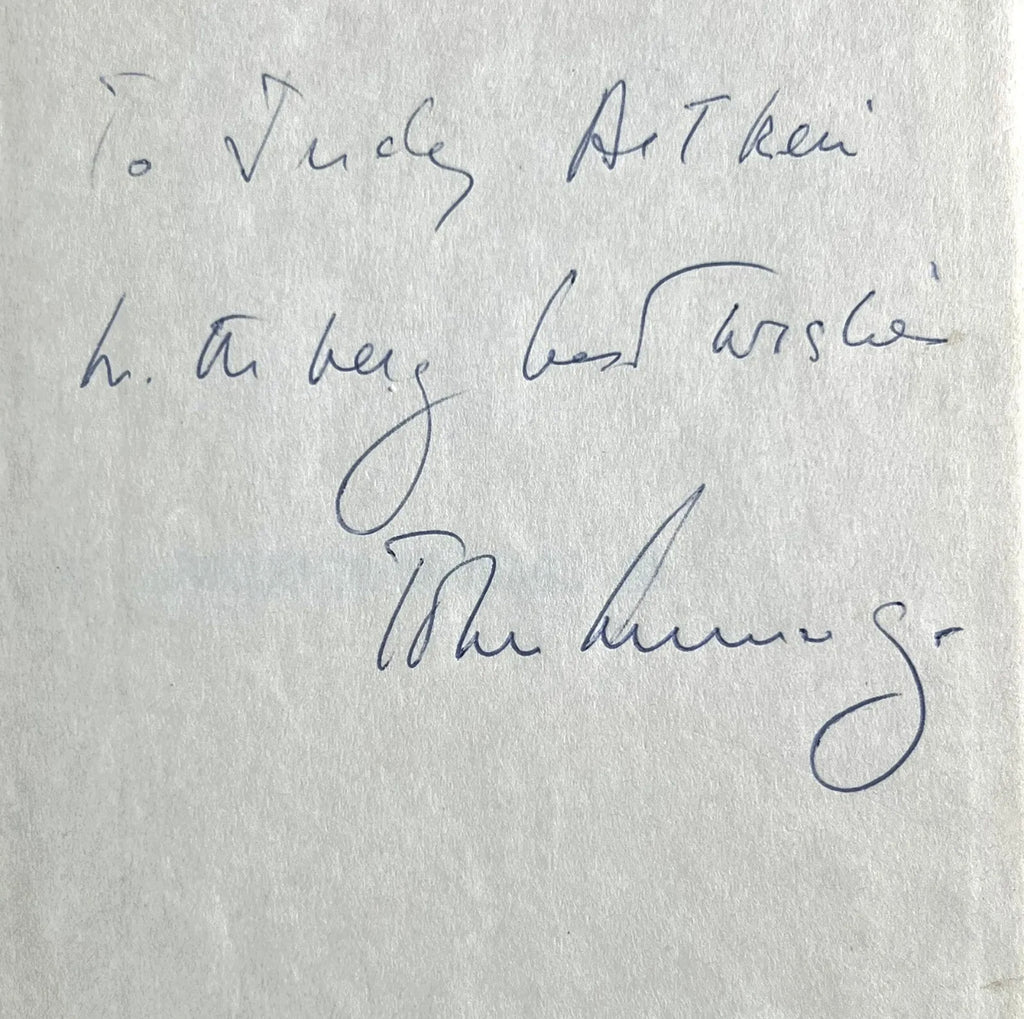 To Judy Aitken
with very best wishes
John